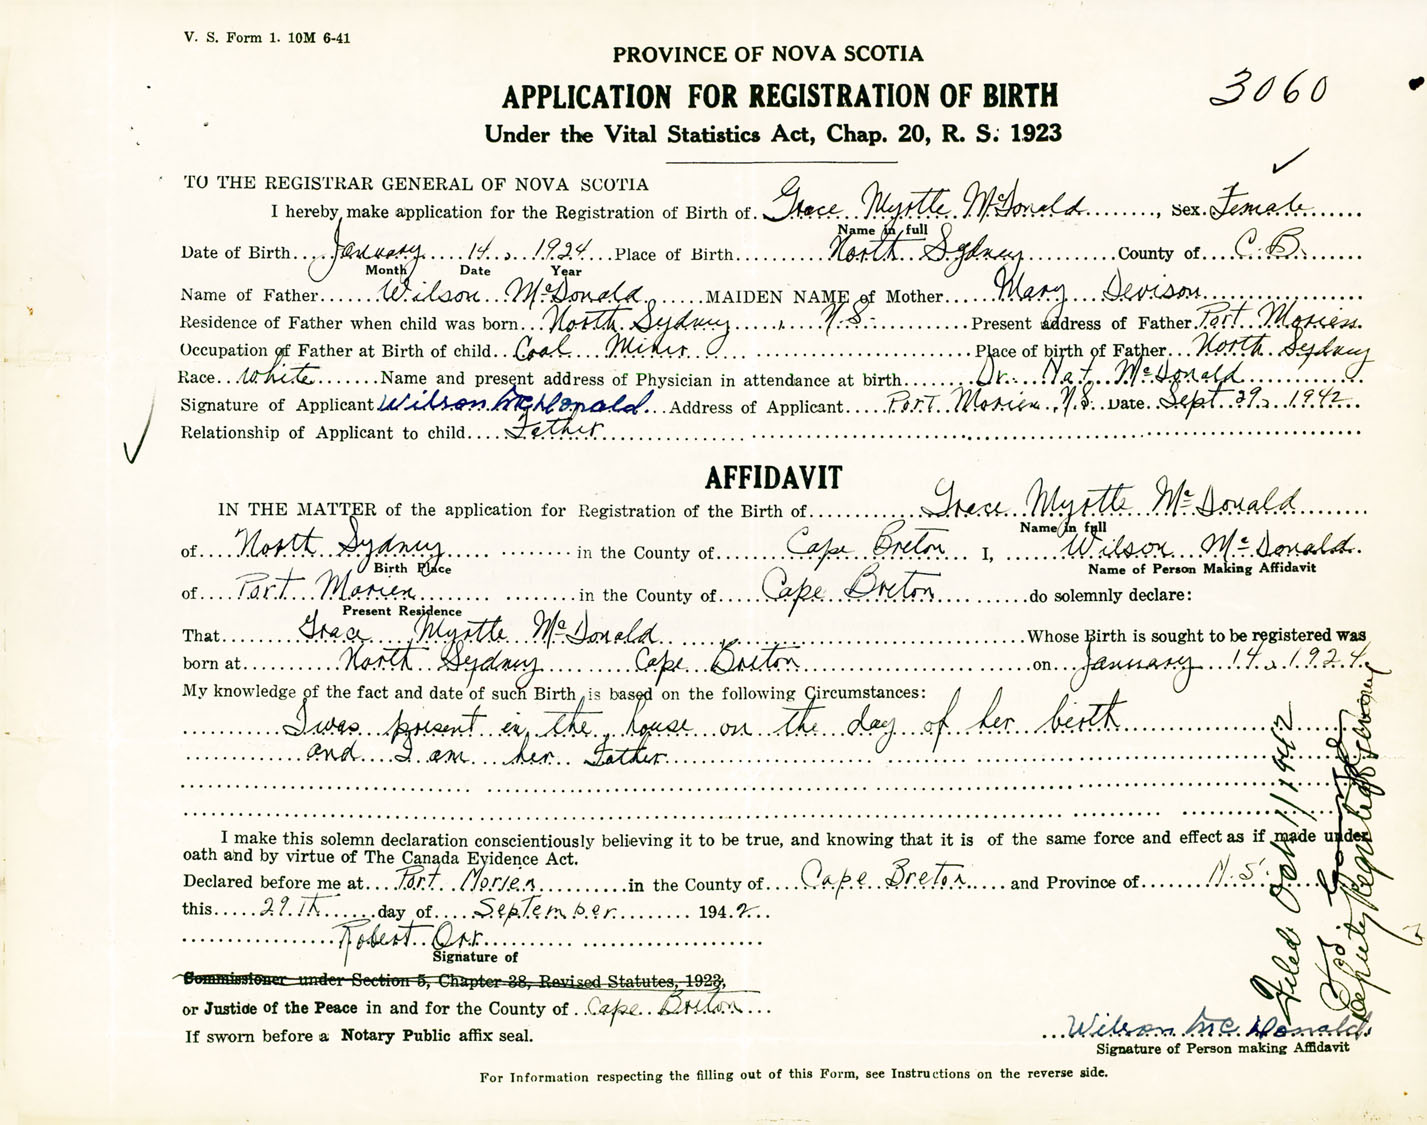 V. S. Form 1. 10M 6-41
PROVINCE OF NOVA SCOTIA
APPLICATION FOR REGISTRATION OF BIRTH
3060
Under the Vital Statistics Act, Chap. 20, R. S. 1923
TO THE REGISTRAR GENERAL OF NOVA SCOTIA
I hereby make application for the Registration of Birth of Grace Myrtle McDonald, Sex Female
Name in full
Date of Birth January 14, 1924 Place of Birth North Sydney County of C. B.
Month Date Year
Name of Father Wilson McDonald MAIDEN NAME of Mother Mary Devison
Residence of Father when child was born North Sydney, N.S. Present address of Father Port Morien
Occupation of Father at Birth of child Coal Miner Place of birth of Father North Sydney
Race White Name and present address of Physician in attendance at birth Dr. Nat McDonald
Signature of Applicant Wilson McDonald Address of Applicant Port Morien, N.S. Date Sept 29, 1942
Relationship of Applicant to child Father
AFFIDAVIT
IN THE MATTER of the application for Registration of the Birth of Grace Myrtle McDonald
Name in full
of North Sydney in the County of Cape Breton I, Wilson McDonald
Birth Place Name of Person Making Affidavit
of Port Morien in the County of Cape Breton do solemnly declare:
Present Residence
That Grace Myrtle McDonald Whose Birth is sought to be registered was
born at North Sydney Cape Breton on January 14, 1924
My knowledge of the fact and date of such Birth is based on the following Circumstances:
I was present in the house on the day of her birth
and I am her Father
I make this solemn declaration conscientiously believing it to be true, and knowing that it is of the same force and effect as if made under
oath and by virtue of The Canada Evidence Act.
Declared before me at Port Morien in the County of Cape Breton and Province of N.S.
this 29th day of September 1942
Robert Orr
Signature of
Commissioner under Section 5, Chapter 38, Revised Statutes, 1923,
or Justice of the Peace in and for the County of Cape Breton
If sworn before a Notary Public affix seal.
Wilson McDonald
Signature of Person making Affidavit
For Information respecting the filling out of this Form, see Instructions on the reverse side.
Filed Oct 1/1942
Deputy Registrar General